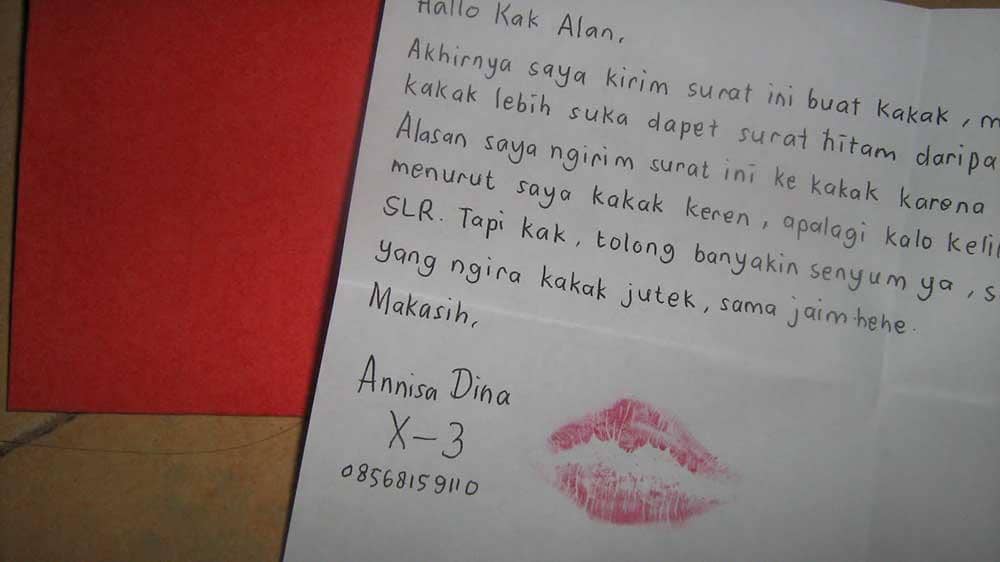 Hallo Kak Alan,
Akhirnya saya kirim surat ini buat kakak,
kakak lebih suka dapet surat hitam
Alasan saya ngirim surat ini ke kakak karena
menurut saya kakak keren, apalagi kalo
SLR. Tapi kak, tolong banyakin senyum ya,
yang ngira kakak jutek, sama jaim hehe.
Makasih,
Annisa Dina
X-3
08568159110